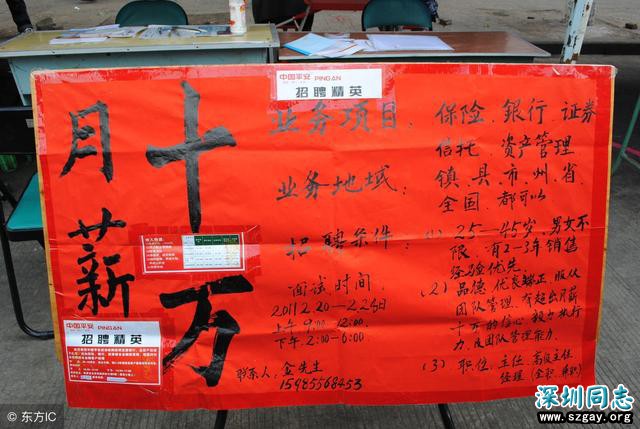 中国平安 PING AN
招聘精英
月薪
十万
业务项目：保险、银行、证券
信托、资产管理
业务地域：镇、县、市、州、省、
全国、都可以
招聘条件：(1) 25—45岁，男女不
限，有2—3年销售
经验优先
(2) 品德优良端正，服从
团队管理，有超出月薪
十万的信心，较如执行
力，及团队管理能力
(3) 职位，主任、高级主任
经理（全职、兼职）
面试时间
2011.2.20—2.22日
上午9:00—12:00
下午2:00—6:00
联系人：金先生
15985568453
中国平安 PING AN
招聘精英
© 东方IC
深圳同志
www.szgay.org